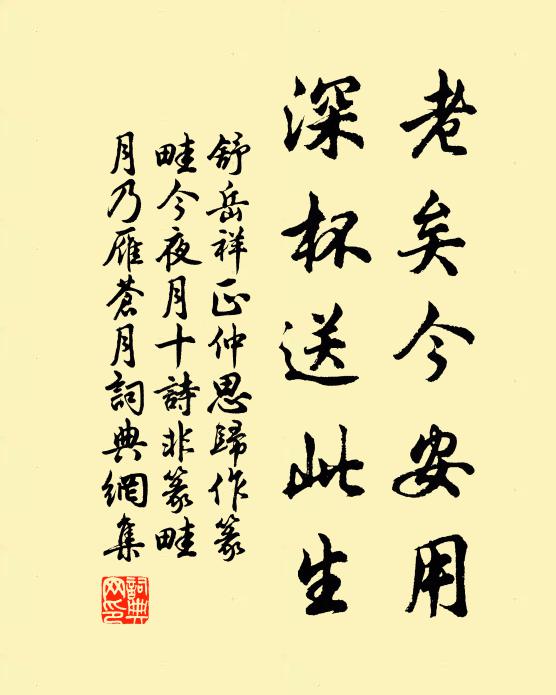 老矣今安用
深杯送此生
舒岳祥正仲思歸作篆
畦今夜月十詩非篆畦
月乃雁蒼月詞典網集
詞典網印